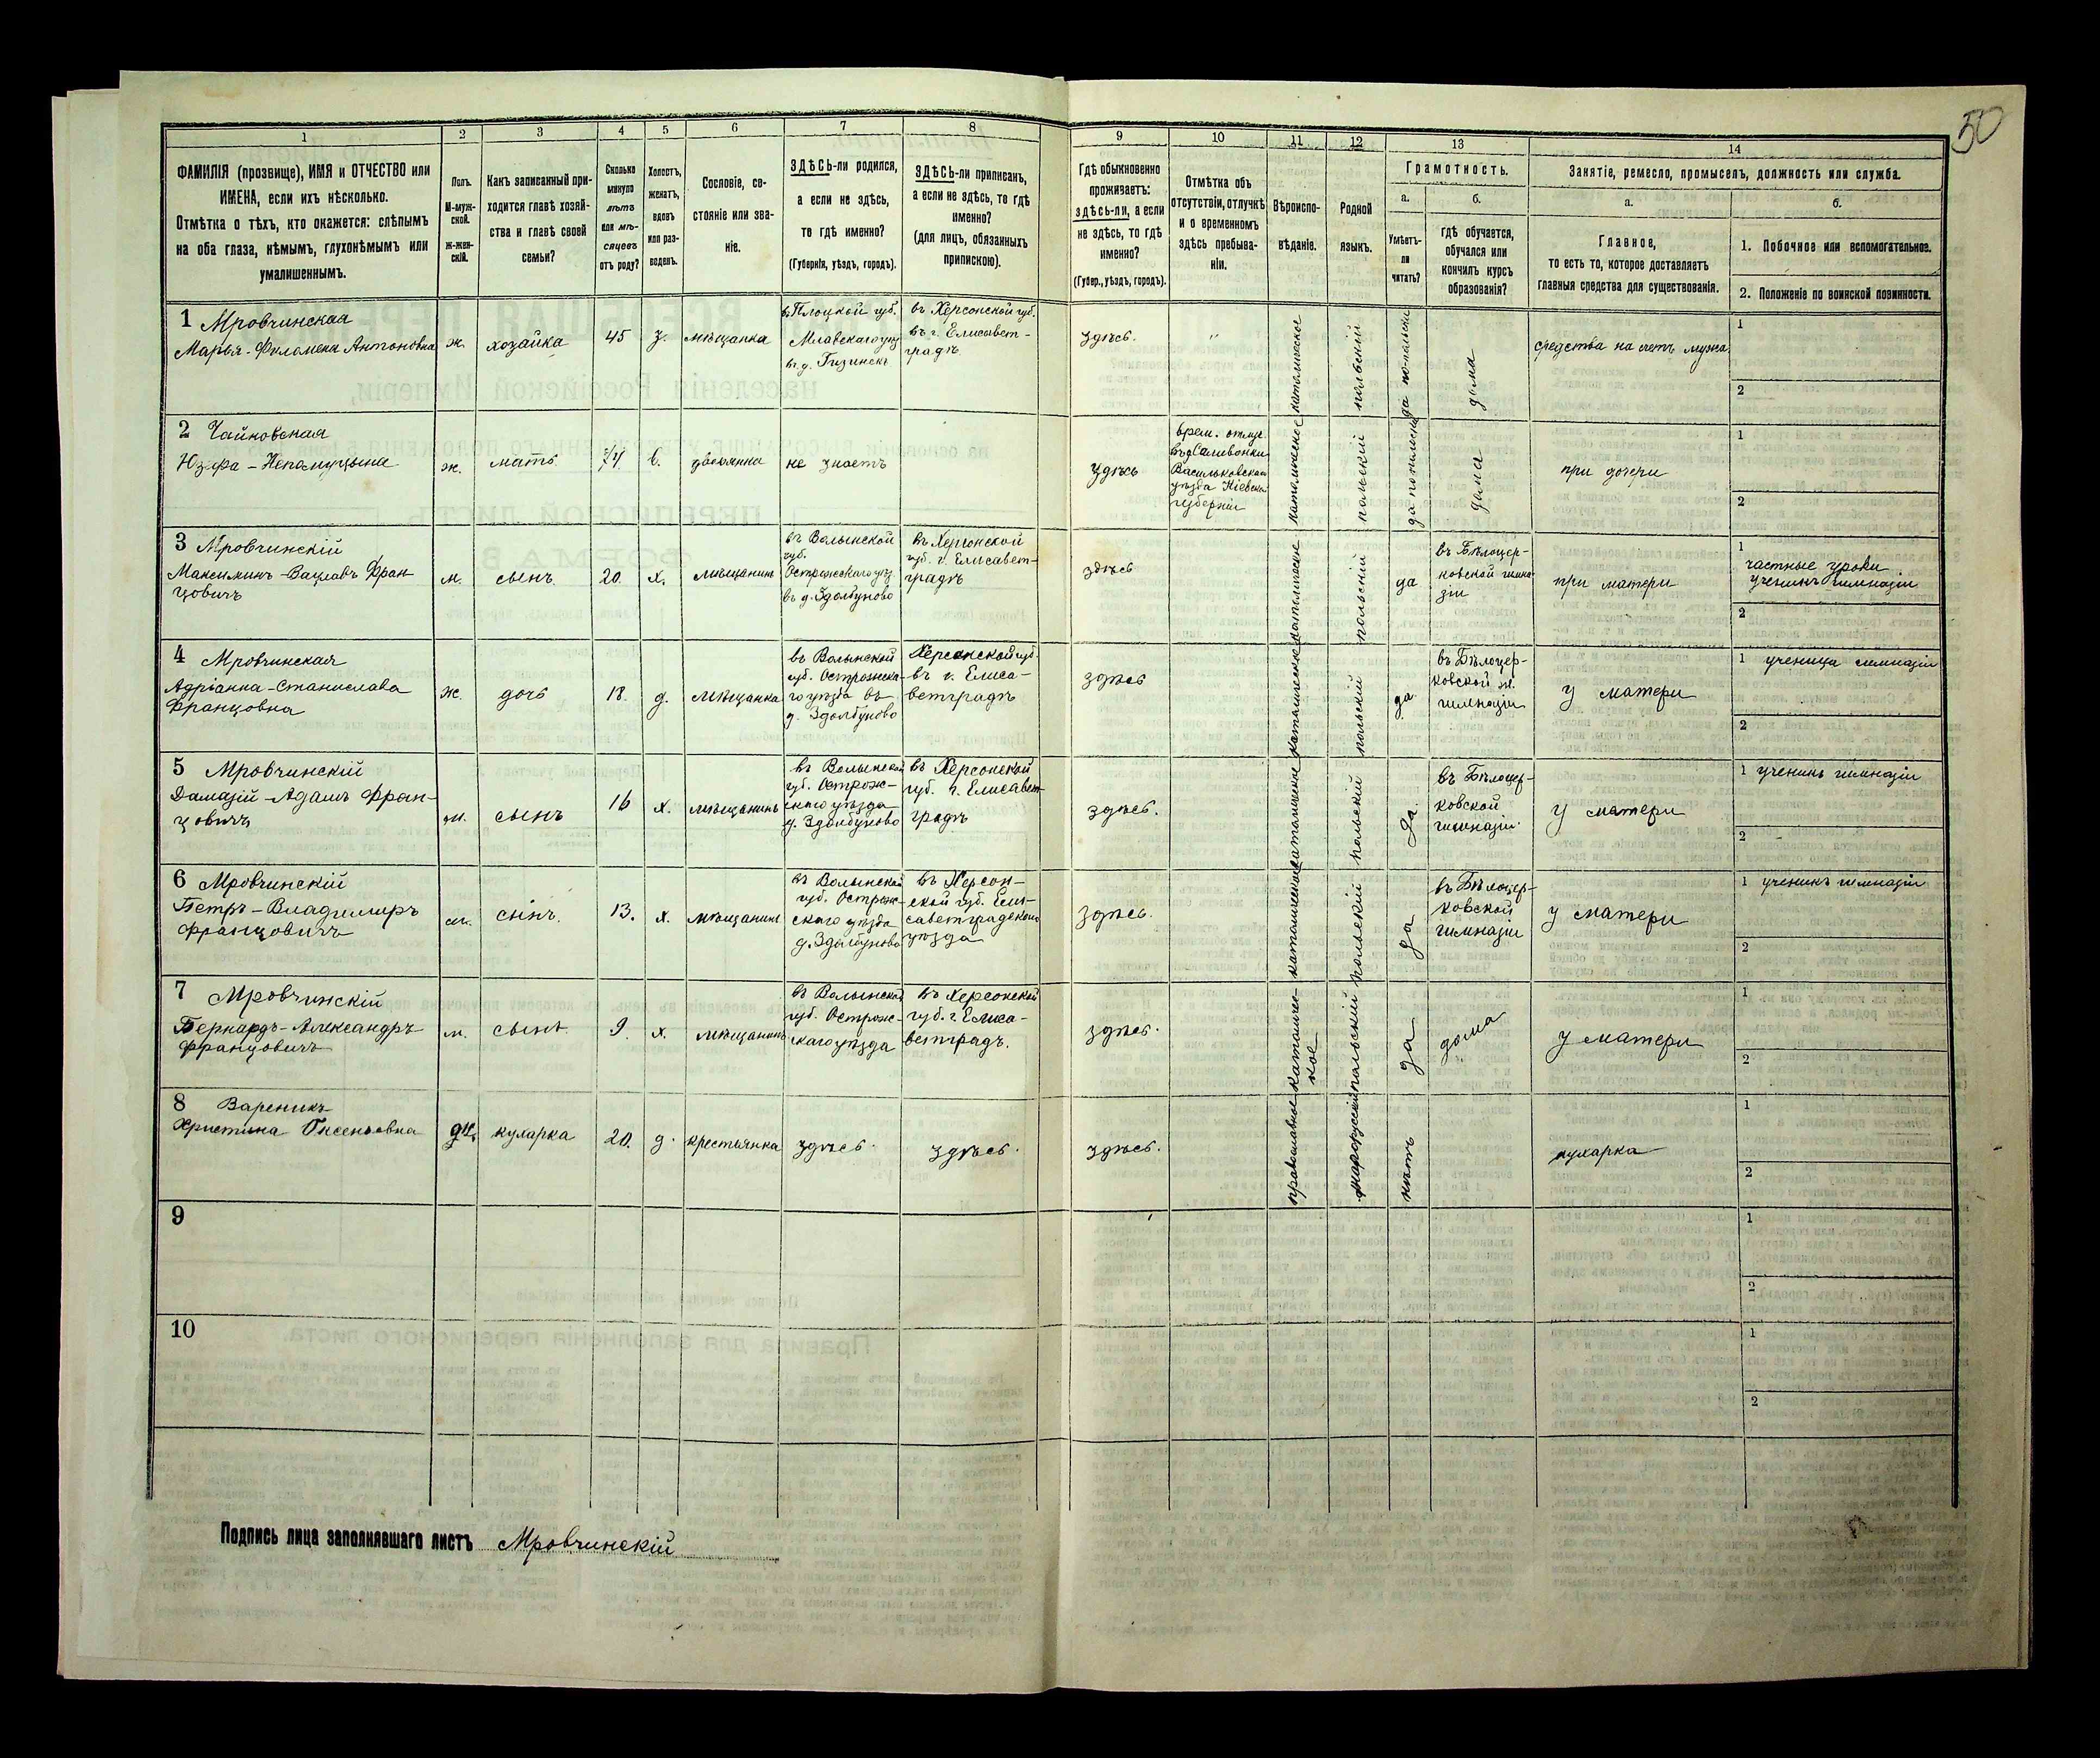 50
1 2 3 4 5 6 7 8 9 10 11 12 13 14
ФАМИЛІЯ (прозвище), ИМЯ и ОТЧЕСТВО или
ИМЕНА, если ихъ нѣсколько.
Отмѣтка о тѣхъ, кто окажется: слѣпымъ
на оба глаза, нѣмымъ, глухонѣмымъ или
умалишеннымъ.
Полъ.
М-муж-
ской.
ж-жен-
скій.
Какъ записанный при-
ходится главѣ хозяй-
ства и главѣ своей
семьи?
Сколько
минуло
лѣтъ
или мѣ-
сяцевъ
отъ роду?
Холостъ,
женатъ,
вдовъ
или раз-
веденъ.
Сословіе, со-
стояніе или зва-
ніе.
ЗДѢСЬ-ли родился,
а если не здѣсь,
то гдѣ именно?
(Губернія, уѣздъ, городъ).
ЗДѢСЬ-ли приписанъ,
а если не здѣсь, то гдѣ
именно?
(для лицъ, обязанныхъ
припискою).
Гдѣ обыкновенно
проживаетъ:
здѣсь-ли, а если
не здѣсь, то гдѣ
именно?
(Губер., уѣздъ, городъ).
Отмѣтка объ
отсутствіи, отлучкѣ
и о временномъ
здѣсь пребыва-
ніи.
Вѣроиспо-
вѣданіе.
Родной
языкъ.
Грамотность.
а.
Умѣетъ-
ли
читать?
б.
гдѣ обучается,
обучался или
кончилъ курсъ
образованія?
Занятіе, ремесло, промыселъ, должность или служба.
а.
Главное,
то есть то, которое доставляетъ
главныя средства для существованія.
б.
1. Побочное или вспомогательное.
2. Положеніе по воинской повинности.
1 Мровчинская
Марья-Филомена Антоновна
ж.
хозяйка
45
з.
мѣщанка
въ Плоцкой губ.
Млавскаго уѣз
въ д.
въ Херсонской губ.
въ г. Елисавет-
градѣ
здѣсь.
"
католическое
польскій
да по-польски
дома
средства на счетъ мужа
1
2
2 Чайковская
Юзефа-Непомуцена
ж.
мать
74
в.
дворянка
не знаетъ
здѣсь
врем. отлуч.
въ д. Саливонки
Васильковскаго
уѣзда Кіевской
губерніи
католическое
польскій
да по польски
дома
при дочери
1
2
3 Мровчинскій
Максиминъ-Вацлавъ Фран-
цовичъ
м.
сынъ
20.
х.
мѣщанинъ
въ Волынской
губ.
Острожскаго уѣз
въ д. Здолбуново
въ Херсонской
губ. г. Елисавет-
градѣ
здѣсь
католическое
польскій
да
въ Бѣлоцер-
ковской гимна-
зіи
при матери
1
частные уроки
ученикъ гимназіи
2
4 Мровчинская
Адріанна-Станислава
Францовна
ж.
дочь
18.
д.
мѣщанка
въ Волынской
губ. Острожска-
го уѣзда въ
д. Здолбуново
Херсонской губ.
въ г. Елиса-
ветградѣ
здѣсь
католическое
польскій
да
въ Бѣлоцер-
ковской ж.
гимназіи
у матери
1 ученица гимназіи
2
5 Мровчинскій
Дамазій-Адамъ Фран-
цовичъ
м.
сынъ
16
х.
мѣщанинъ
въ Волынской
губ. Острож-
скаго уѣзда
д. Здолбуново
въ Херсонской
губ. г. Елисавет-
градѣ
здѣсь.
католическое
польскій
да
въ Бѣлоцер-
ковской
гимназіи
у матери
1 ученикъ гимназіи
2
6 Мровчинскій
Петръ-Владимиръ
Францовичъ
м.
сынъ.
13.
х.
мѣщанинъ
въ Волынской
губ. Острож-
скаго уѣзда
д. Здолбуново
въ Херсон-
ской губ. Ели-
саветградскаго
уѣзда
здѣсь.
католическое
польскій
да
въ Бѣлоцер-
ковской
гимназіи
у матери
1 ученикъ гимназіи
2
7 Мровчинскій
Бернардъ-Александръ
Францовичъ
м.
сынъ.
9.
х.
мѣщанинъ
въ Волынской
губ. Острож-
скаго уѣзда
въ Херсонской
губ. г. Елиса-
ветградъ.
здѣсь.
католичес-
кое
польскій
да
дома
у матери
1
2
8 Вареникъ
Христина Оксеньовна
кухарка
20.
д.
крестьянка
здѣсь.
здѣсь.
здѣсь.
православное
малорусскій
нѣтъ
кухарка
1
2
9
1
2
10
1
2
Подпись лица заполнявшаго листъ Мровчинскій